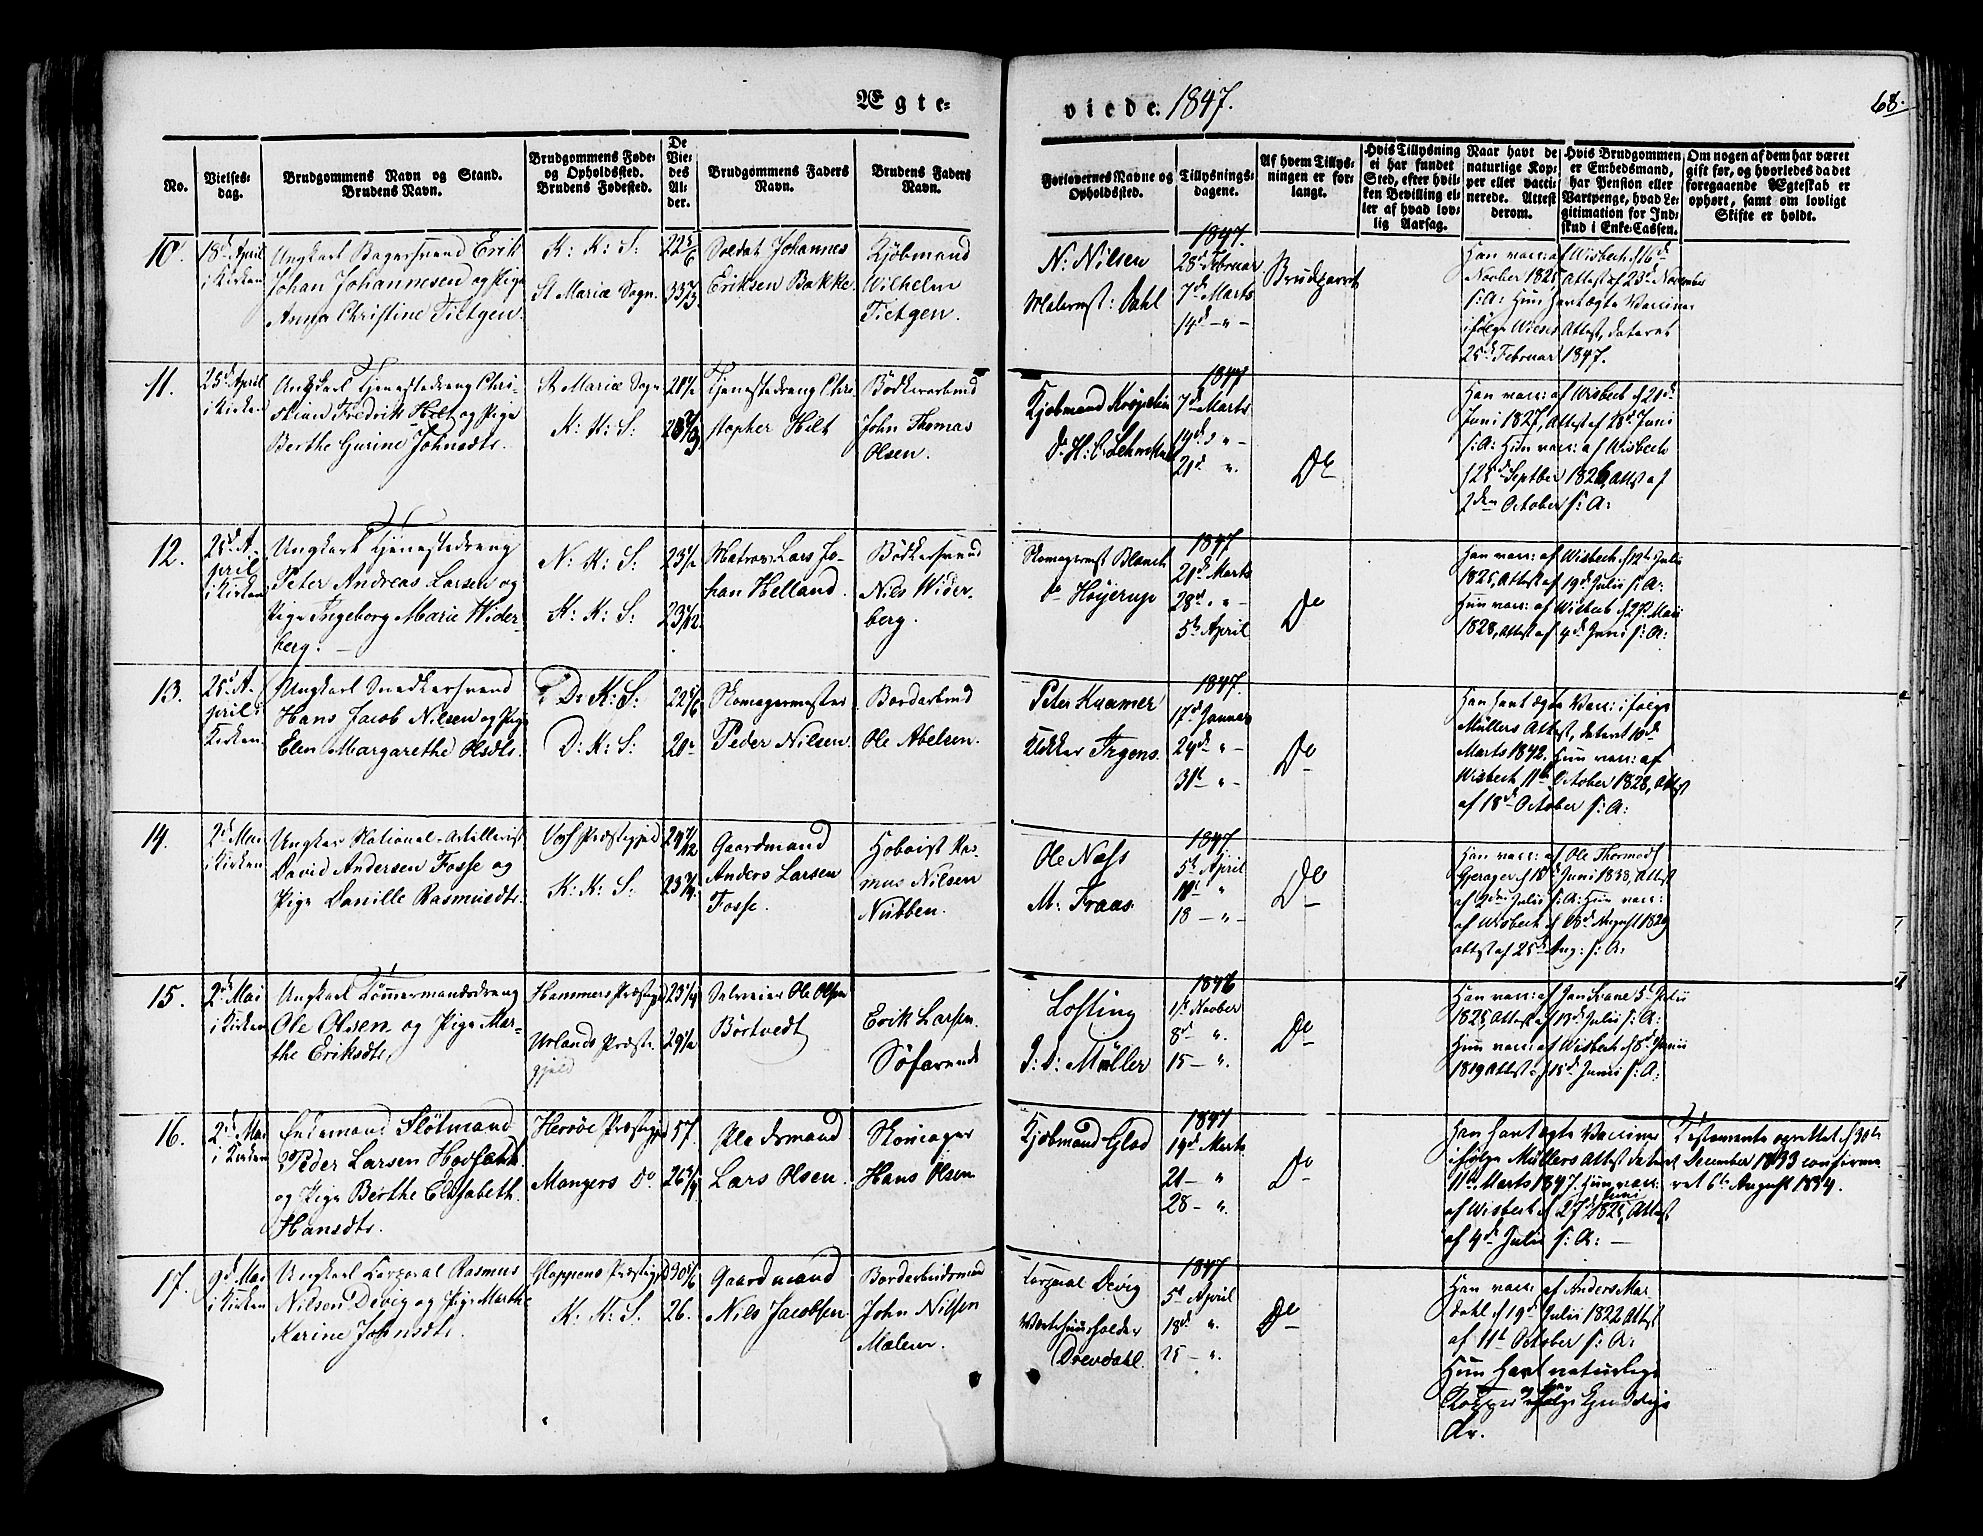 Ægte-
viede. 1847.
68.
No.
Vielses-
dag.
Brudgommens Navn og Stand.
Brudens Navn.
Brudgommens Føde-
og Opholdssted.
Brudens Fødested.
De
Vie-
des
Al-
der.
Brudgommens Faders
Navn.
Brudens Faders
Navn.
Forlovernes Navne og
Opholdssted.
Tillysnings-
dagene.
Af hvem Tillys-
ningen er for-
langt.
Hvis Tillysning
ei har fundet
Sted, efter hvil-
ken Bevilling el-
ler af hvad lov-
lig Aarsag.
Naar havt de
naturlige Kop-
per eller vacci-
nerede. Attest
derom.
Hvis Brudgommen
er Embedsmand,
har Pension eller
Vartpenge, hvad Le-
gitimation for Ind-
skud i Enke-Cassen.
Om nogen af dem har været
gift før, og hvorledes da det
foregaaende Ægteskab er
ophørt, samt om lovligt
Skifte er holdt.
10.
18d April
i Kirken
Ungkarl Bagersvend Erik
Johan Johannesen og Pige
Anna Christine Tietgen.
K: K: S:
St Mariæ Sogn.
Soldat Johannes
Eriksen Bakke
Kjöbmand
Wilhelm
Tietgen.
N: Nilsen
Malermst: Dahl
1847.
28d Februar
7d Marts
14d - " -
Brudgommen
Han vacc: af Wisbech d 16d
Novber 1825 Attest af 23d November
s: A: Hun havt ægte Vacciner
ifølge Wieses Attest, dateret
25d Februar 1847.
11.
25d April
i Kirken
Ungkarl Tjenestedreng Chri-
stian Fredrik Hilt og Pige
Berthe Gurine Johnsdtr.
St Mariæ Sogn
K: K: S:
Tjenestedreng Chri
stopher Hilt
Bödkersvend
John Thomas
Olsen.
Kjøbmand
Do H: C: Lehmkuhl
1847
7d Marts
14d " -
21d ".
Do
Han vacc: af Wisbech d 21d
Juni 1827, Attest af 28d Juni
s: A: Hun vacc: af Wisbech
d 25d Septber 1826, Attest af
2den October s: A:
12.
25d A-
pril
i Kirken
Ungkarl Tjenestedreng
Peter Andreas Larsen og
Pige Ingeborg Marie Wider-
berg. -
N: K: S:
K: K: S:
23 1/2
23 1/12.
Matros Lars Jo-
han Helland.
Bödkersvend
Nils Wider-
berg.
Skomagermst Blanch
Do Höyerup
1847
21d Marts
28d " -
5te April
Do
Han vacc: af Wisbech d 12te Julii
1825, Attest af 19d Julii s: A:
Hun vacc: af Wisbech d 27d Maii
1828, Attest af 4d Juni s: A:
13.
25d A-
pril i
Kirken.
Ungkarl Snedkersvend
Hans Jacob Nilsen og Pige
Elen Margarethe Olsdtr.
D: K: S:
D: K: S:
22 5/6
20-
Skomagermester
Peder Nilsen.
Bordarbeid
Ole Abelsen.
Peter Kramer
Klokker Irgens.
1847.
17d Januar
24d " -
31d " -
Do
Han havt ægte Vacc: ifølge
Müllers Attest, dateret 10d
Marts 1842. Hun vacc: af
Wisbech 11te October 1828, Attest
af 18d October s: A:
14.
2d Mai
i Kirken
Ungkar National-Artellerist
David Andersen Fosse og
Pige Danille Rasmusdtr.
Voss Præstegjeld
K: K: S:
Gaardmand
Anders Larsen
Fosse.
Hoboist Ras-
mus Nilsen
Nubben.
Ole Næss
M: Traas.
1847.
5te April
11te "
18 - " -
Do
Han vacc: af Ole Thormods
Gjerager d 18d Juni 1838, Attest
af 2den Julii s: A: Hun vacc:
af Wisbech d 18d August 1829
Attest af 25d Aug: s: A:
15.
2d Mai
i Kirken
Ungkarl Tömmermandsdreng
Ole Olsen og Pige Mar-
the Eriksdtr.
Hammers Præstegjd
Urlands Præste-
gjeld
23 1/4
29 1/2
Selveier Ole Olsen
Börtvedt
Erik Larsen
Söfarende
Lofting
J: D: Müller
1846
1st Novber
8d - ".
15 - ".
Do
Han vacc: af Jan Svane 5te Julii
1825, Attest af 13d Julii s: A:
Hun vacc: af Wisbech d 8d Junii
1819 Attest af 15d Junii s: A:
16.
2d Mai
i Kirken
Enkemand Flötmand
Peder Larsen
og Pige Berthe Elisabeth
Hansdtr.
Heröe Præstegjd
Mangers Do
57.
26 3/4
Pladsmand
Lars Olsen.
Skomager
Hans Olsen
Kjøbmand Glad
1847
19d Marts
21 - "
28 - ".
Do
Han havt ægte Vacciner
ifølge Müllers Attest dateret
11te Marts 1847. Hun vacc:
af Wisbech d 27d Juni 1825, Attest
af 4d Julii s: A: -
Testamente oprettet d 30te
December 1833 confirme-
ret 6te August 1834.
17.
9d Mai
i Kirken
Ungkarl Corporal Rasmus
Nilsen Devig og Pige Marthe
Karine Johnsdtr.
Gloppens Præstegjd
K: K: S:
30 5/6
26.
Gaardmand
Nils Jacobsen
Bordarbeidsmand
John Nilsen
Malem.
Corporal Devig
Vertshuusholder
Drevdahl.
1847
5te April
18d ".
25 - ".
Do
Han vacc: af Anders Mar
dahl d 19d Julii 1822 Attest
af 11te October s: A:
Hun havt naturlige
Kopper og har ifølge tydelige
Ar.